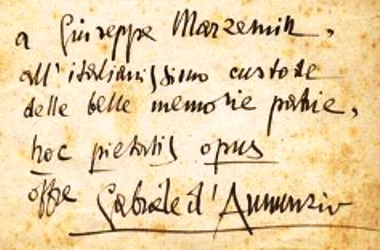 a Giuseppe Marzemin,
all'italianissimo custode
delle belle memorie patrie,
hoc pietatis opus
offre Gabriele d'Annunzio